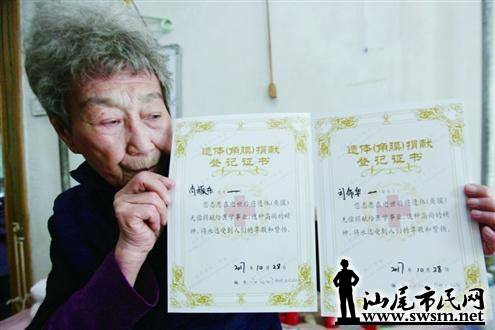 遗体(角膜)捐献
登记证书
您志愿在逝世后将遗体(角膜)
无偿捐献给医学事业,这种高尚的精
神,将永远受到人们的尊敬和赞扬。
2017年10月28日
遗体(角膜)捐献
登记证书
您志愿在逝世后将遗体(角膜)
无偿捐献给医学事业,这种高尚的精
神,将永远受到人们的尊敬和赞扬。
2017年10月28日
汕尾市民网
www.swsm.net